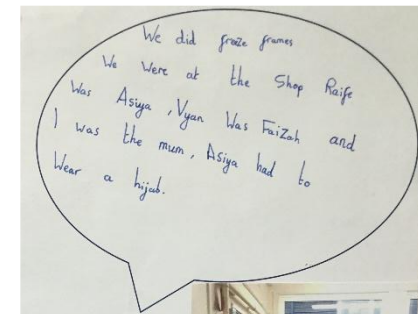 We did froze frames
We were at the Shop Raife
Was Asiya , Vyan Was FaiZah and
I was the mum, Asiya had to
Wear a hijab.